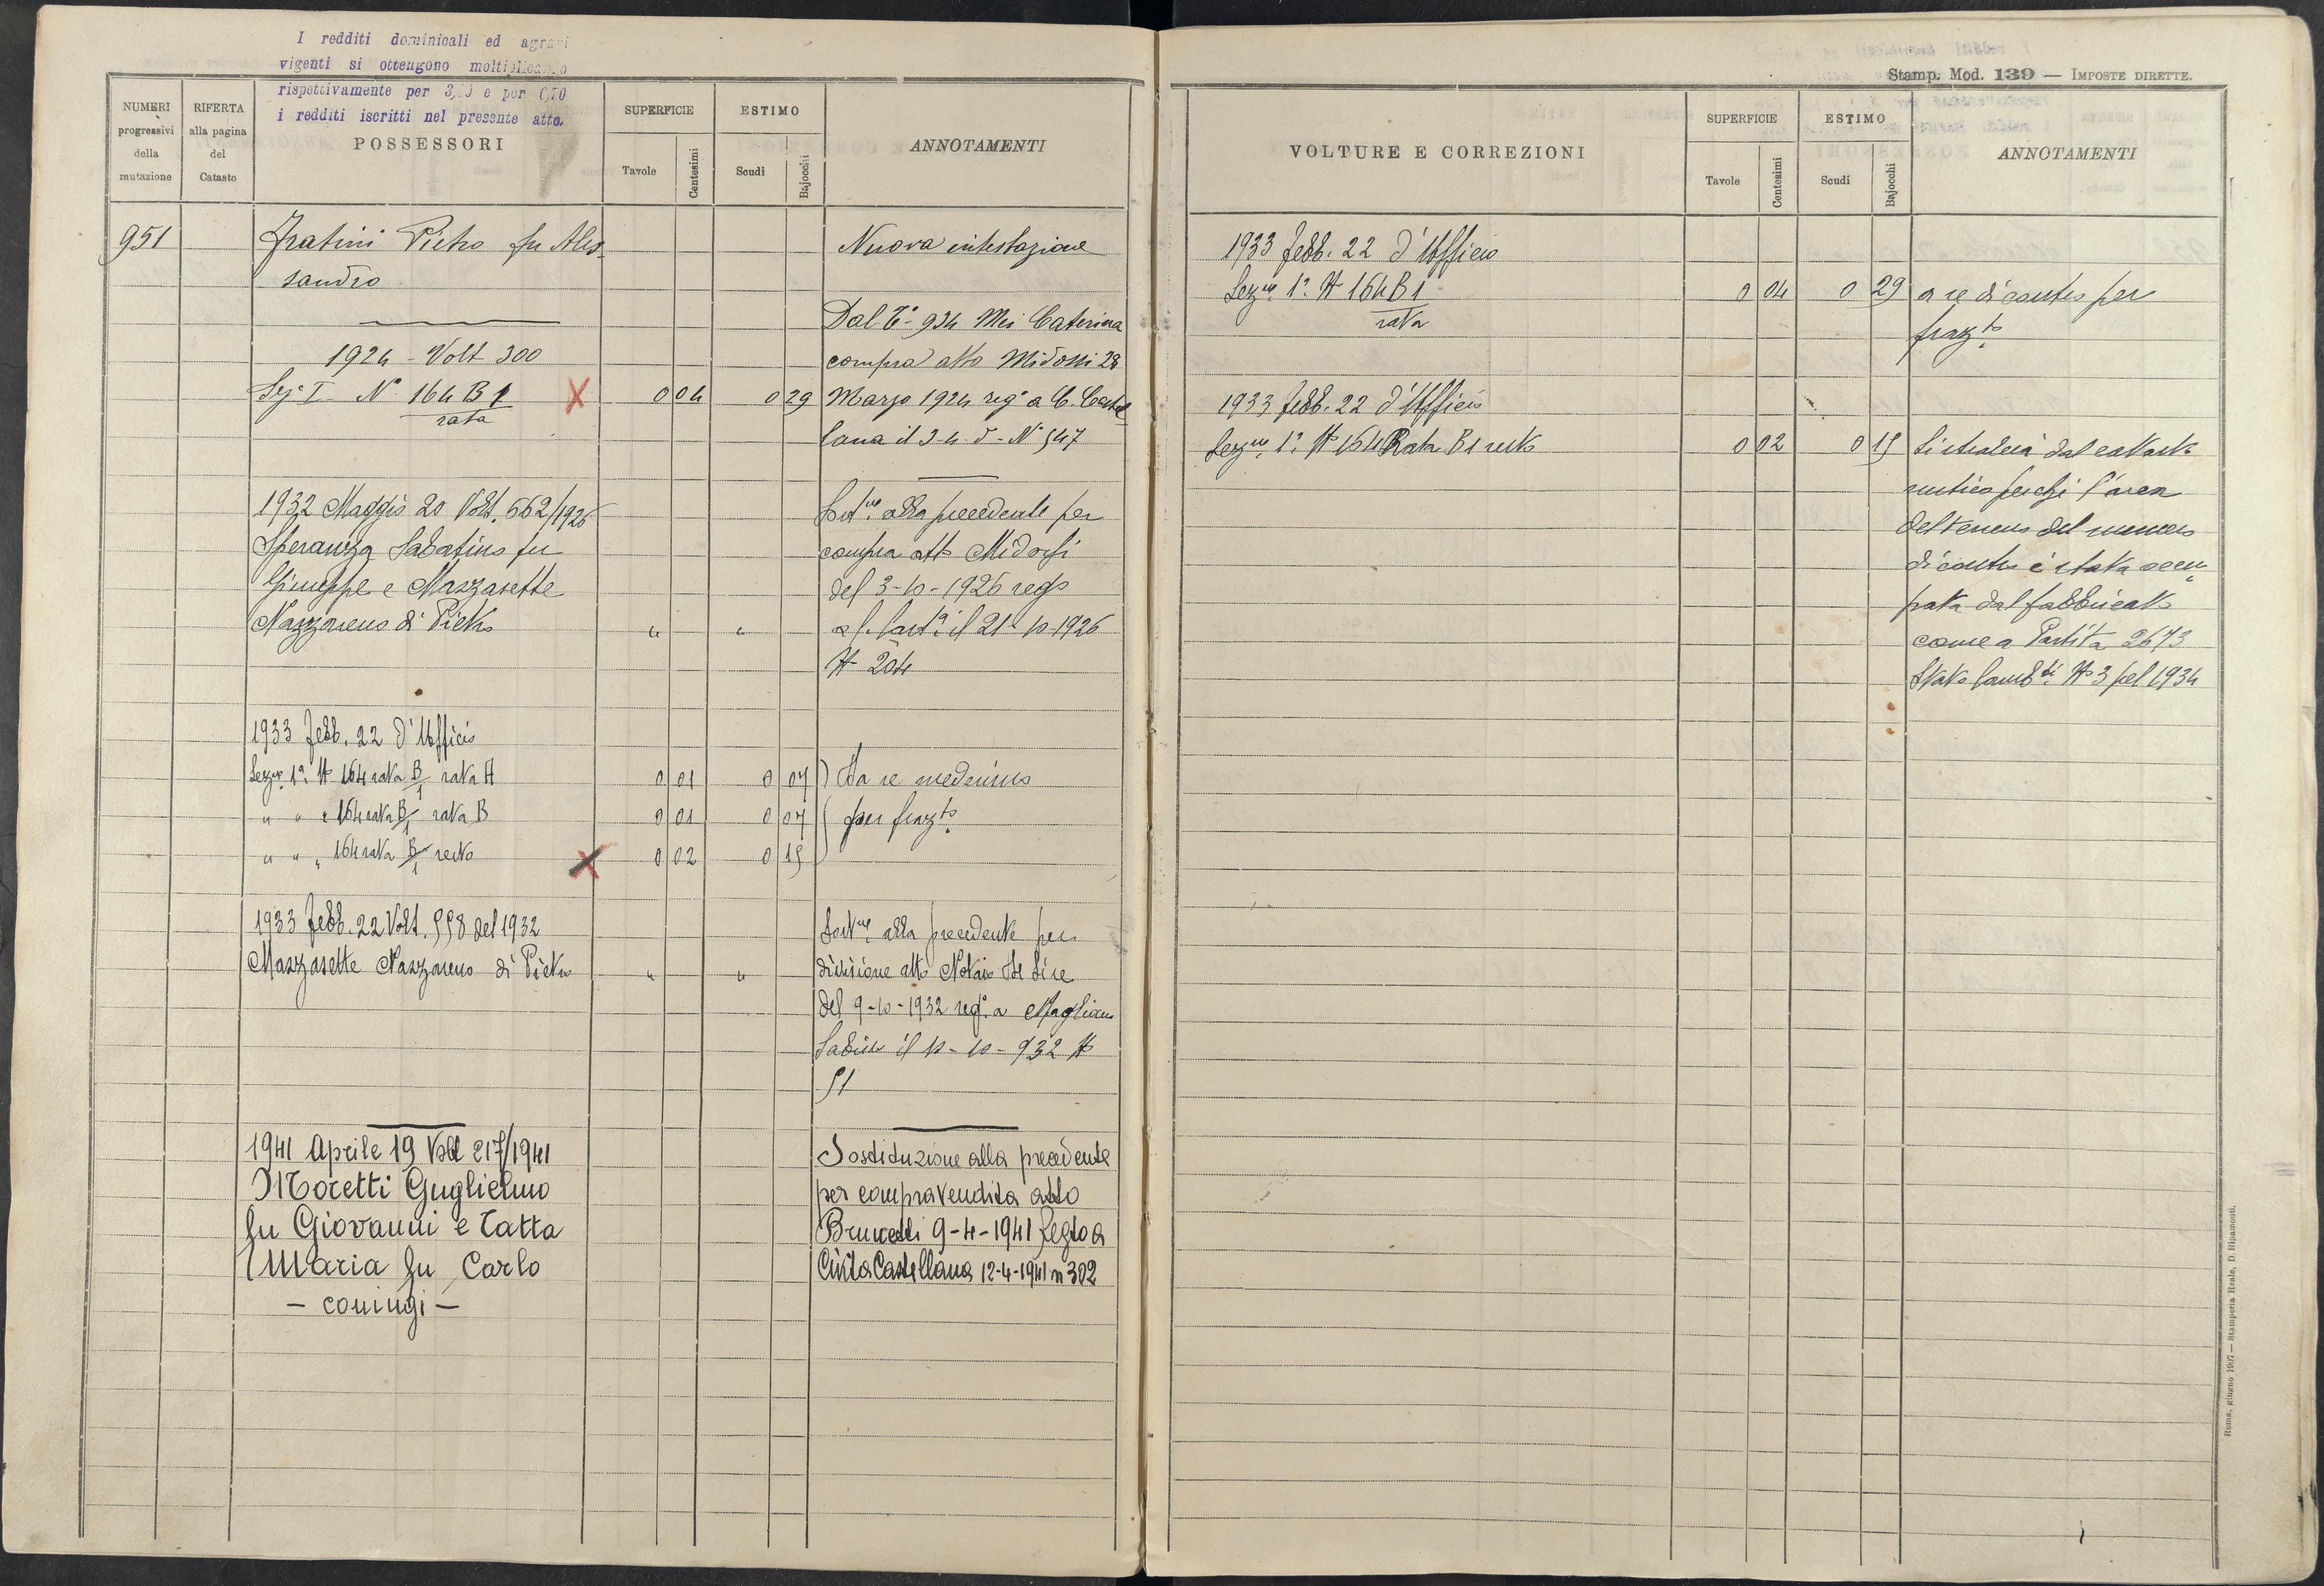 I redditi dominicali ed agrari
vigenti si ottengono moltiplicando
rispettivamente per e per
i redditi iscritti nel presente atto.
NUMERI
progressivi
della
mutazione
RIFERTA
alla pagina
del
Catasto
POSSESSORI
SUPERFICIE
Tavole
Centesimi
ESTIMO
Scudi
Bajocchi
ANNOTAMENTI
951
Fratini Pietro fu Ales
sandro
1924 - Volt 300
Sez I N° 164 B 1 X 0 04 0 29
rata
Nuova intestazione
Dal 934 Mei Caterina
compra atto Midossi 28
Marzo 1924 reg° a C. Castel
lana il 3-4-5 - N° 547
1932 Maggio 20 Volt. 662/1926
Speranza Sabatino fu
Giuseppe e Mazzasette
Nazzareno di Pietro " "
alla precedente per
compra atto Midossi
del 3-10-1926 regº
il 21-10-1926
N 204
1933 Febb. 22 d'Ufficio
Lezne 1ª N 164 rata B/1 rata A 0 01 0 07
" " " 164 rata B/1 rata B 0 01 0 07
" " " 164 rata B/1 resto X 0 02 0 15
Da se medesimo
per frazto
1933 Febb. 22 Volt. 558 del 1932
Mazzasette Nazzareno di Pietro " "
alla precedente per
divisione atto Notaio
del 9-10-1932 regº a Magliano
Sabina il 10-10-932 N
51
1941 Aprile 19 Volt 217/1941
Moretti Guglielmo
fu Giovanni e Tatta
Maria fu Carlo
- coniugi -
Sostituzione alla precedente
per compravendita atto
Brunetti 9-4-1941 Regto a
Civita Castellana 12-4-1941 n 302
Stamp. Mod. 139 — IMPOSTE DIRETTE.
VOLTURE E CORREZIONI
SUPERFICIE
Tavole
Centesimi
ESTIMO
Scudi
Bajocchi
ANNOTAMENTI
1933 Febb. 22 d'Ufficio
Lezne 1ª N 164 B 1 0 04 0 29 a se di contro per
rata frazto
1933 Febb. 22 d'Ufficio
Lezne 1ª N 164 Rata B1 resto 0 02 0 15 Si stralcia dal catasto
rustico perchè l'area
del terreno del numero
di contro è stata occu
pata dal fabbricato
come a Partita 2673
Stato Camb.ti N 3 pel 1934
Roma, giugno 1907 — Stamperia Reale, D. Ripamonti.